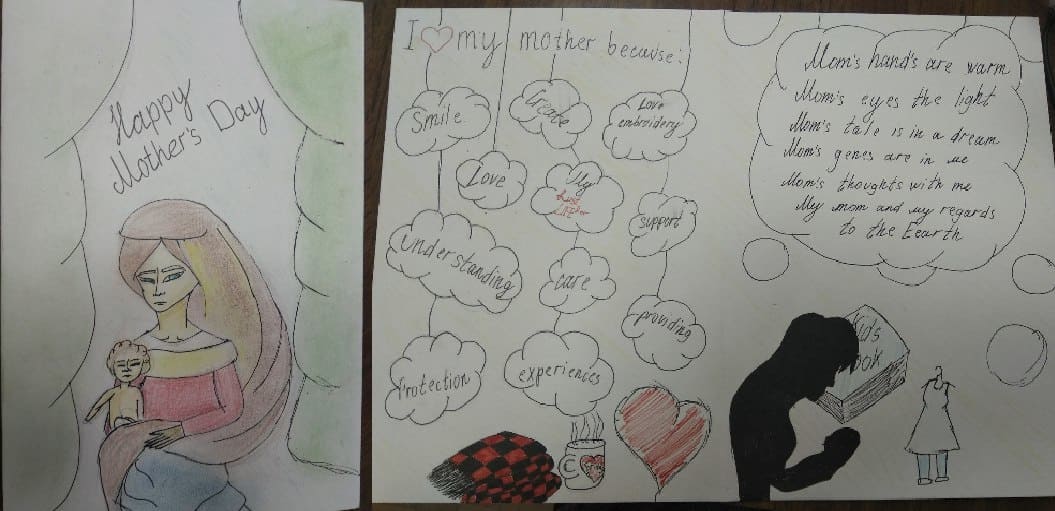 Happy
Mother's Day
I my mother because:
Smile
Create
Love
embroidery
Love
My
understanding
care
support
providing
Protection
experiences
Mom's hand's are warm
Mom's eyes the light
Mom's tale is in a dream
Mom's genes are in me
Mom's thoughts with me
My mom and my regards
to the Eearth
Kids
Box